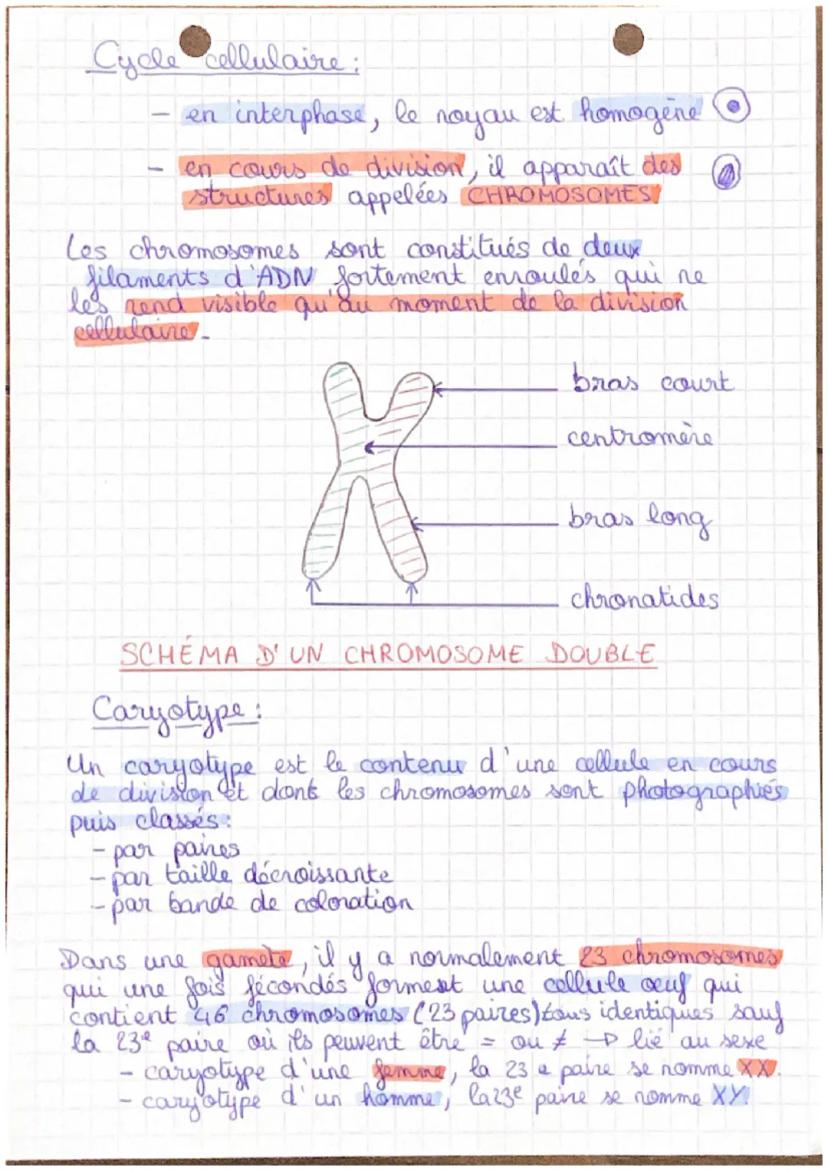 Cycle cellulaire :
- en interphase, le noyau est homogène
- en cours de division, il apparaît des
structures appelées CHROMOSOMES
Les chromosomes sont constitués de deux
filaments d'ADN fortement enroulés qui ne
les rend visible qu'au moment de la division
cellulaire.
bras court
centromère
bras long
chronatides
SCHÉMA D'UN CHROMOSOME DOUBLE
Caryotype :
Un caryotype est le contenu d'une cellule en cours
de division et dont les chromosomes sont photographiés
puis classés :
- par paires
- par taille décroissante
- par bande de coloration
Dans une gamète, il y a normalement 23 chromosomes
qui une fois fécondés forment une cellule œuf qui
contient 46 chromosomes (23 paires) tous identiques sauf
la 23e paire où ils peuvent être = ou ≠ → lié au sexe
- caryotype d'une femme, la 23 e paire se nomme XX.
- caryotype d'un homme, la 23e paire se nomme XY.